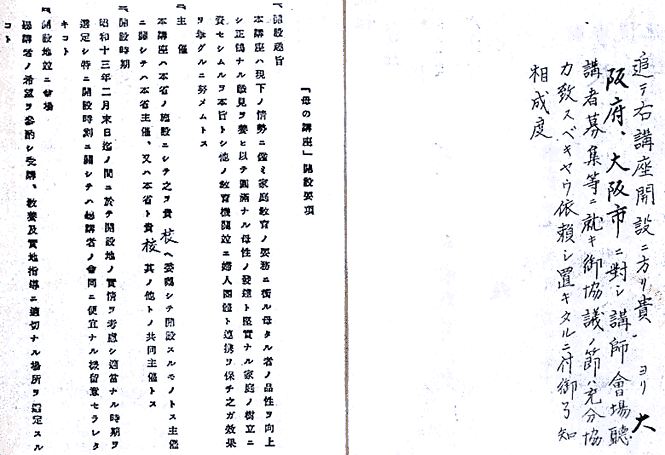 追テ右講座開設ニ方リ貴 ヨリ大
阪府、大阪市ニ對シ講師會場聽
講者募集等ニ就キ御協議ノ節ハ充分協
力致スベキヤウ依頼シ置キタルニ付御了知
相成度
「母の講座」開設要項
一、開設趣旨
本講座ハ現下ノ情勢ニ鑑ミ家庭教育ノ要務ニ衝ル母タル者ノ品性ヲ向上
シ正鵠ナル識見ヲ養ヒ以テ圓滿ナル母性ノ發達ト堅實ナル家庭ノ樹立ニ
資セシムルヲ本旨トシ他ノ教育機關竝ニ婦人團體ト連携ヲ保チ之ガ效果
ヲ擧グルニ努メムトス
二、主催
本講座ハ本省ノ施設ニシテ之ヲ貴校ヘ委囑シテ開設スルモノトス主催
ニ關シテハ本省主催、又ハ本省ト貴校其ノ他トノ共同主催トス
三、開設時期
昭和十三年二月末日迄ノ間ニ於テ開設地ノ實情ヲ考慮シ適當ナル時期ヲ
選定シ特ニ開設時刻ニ關シテハ聽講者ノ會同ニ便宜ナル樣留意セラレタ
キコト
四、開設地竝ニ會場
聽講者ノ希望ヲ參酌シ受講、教養及實地指導ニ適切ナル場所ヲ選定スル
コト